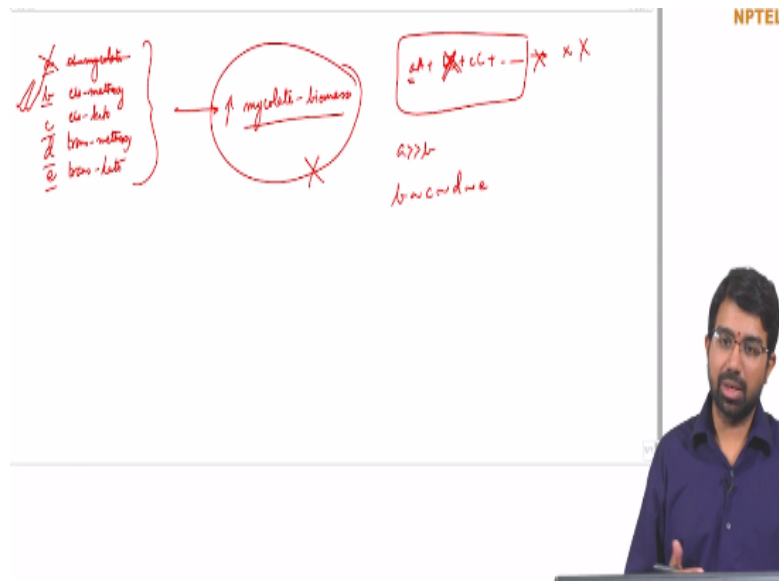 NPTEL
a α-mycolate
b cis-methoxy
c cis-keto
d trans-methoxy
e trans-keto
→ ↑ mycolate-biomass
aA + + cC + . — → x X
a>>b
b~c~d~e